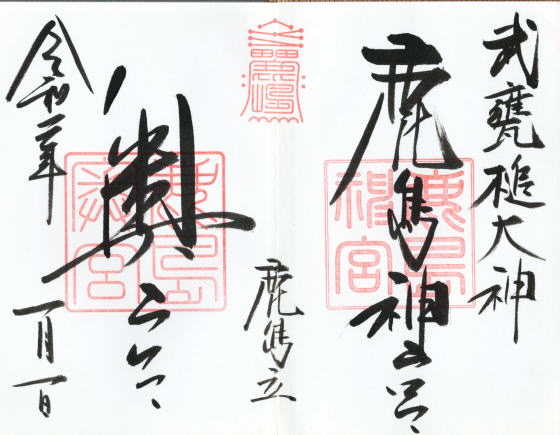 武甕槌大神
鹿島神宮
鹿島神宮
鹿島立
奥宮
令和二年
一月一日